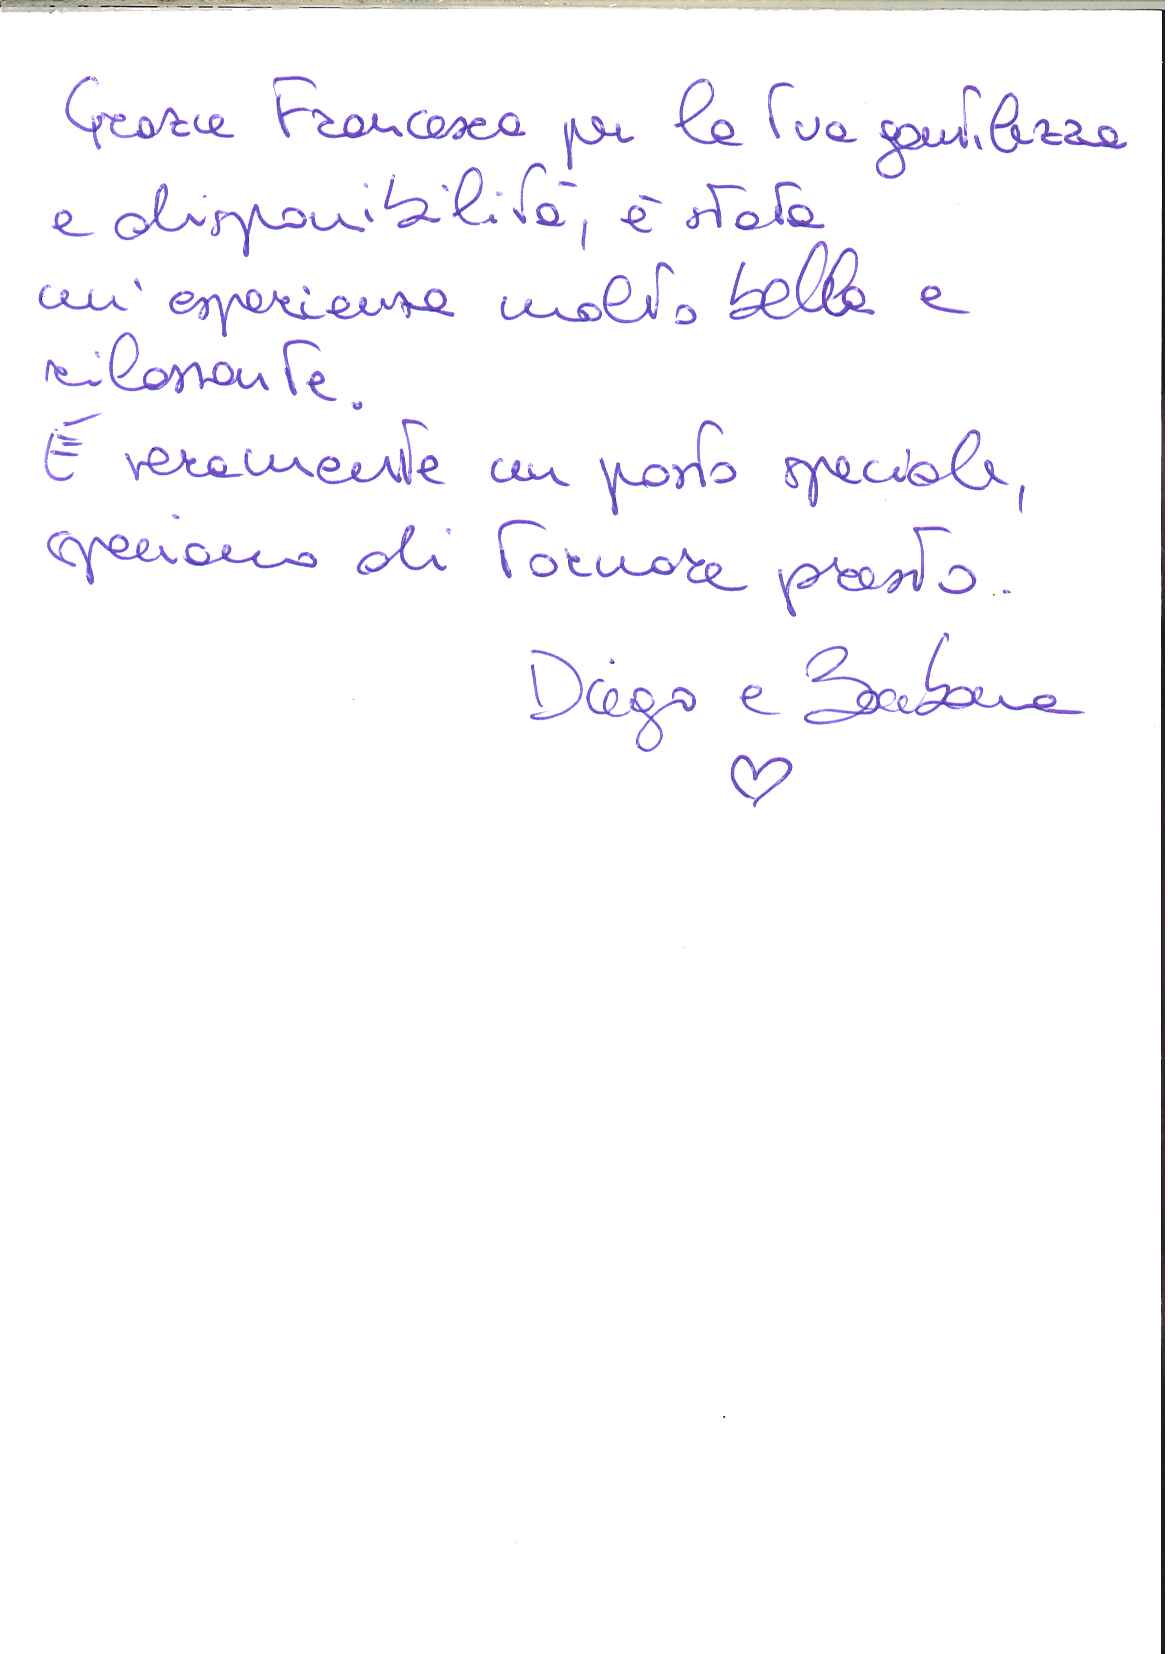 Grazie Francesca per la tua gentilezza
e disponibilità, è stata
un'esperienza molto bella e
rilassante.
È veramente un posto speciale,
speriamo di tornare presto..
Diego e Barbara
♡